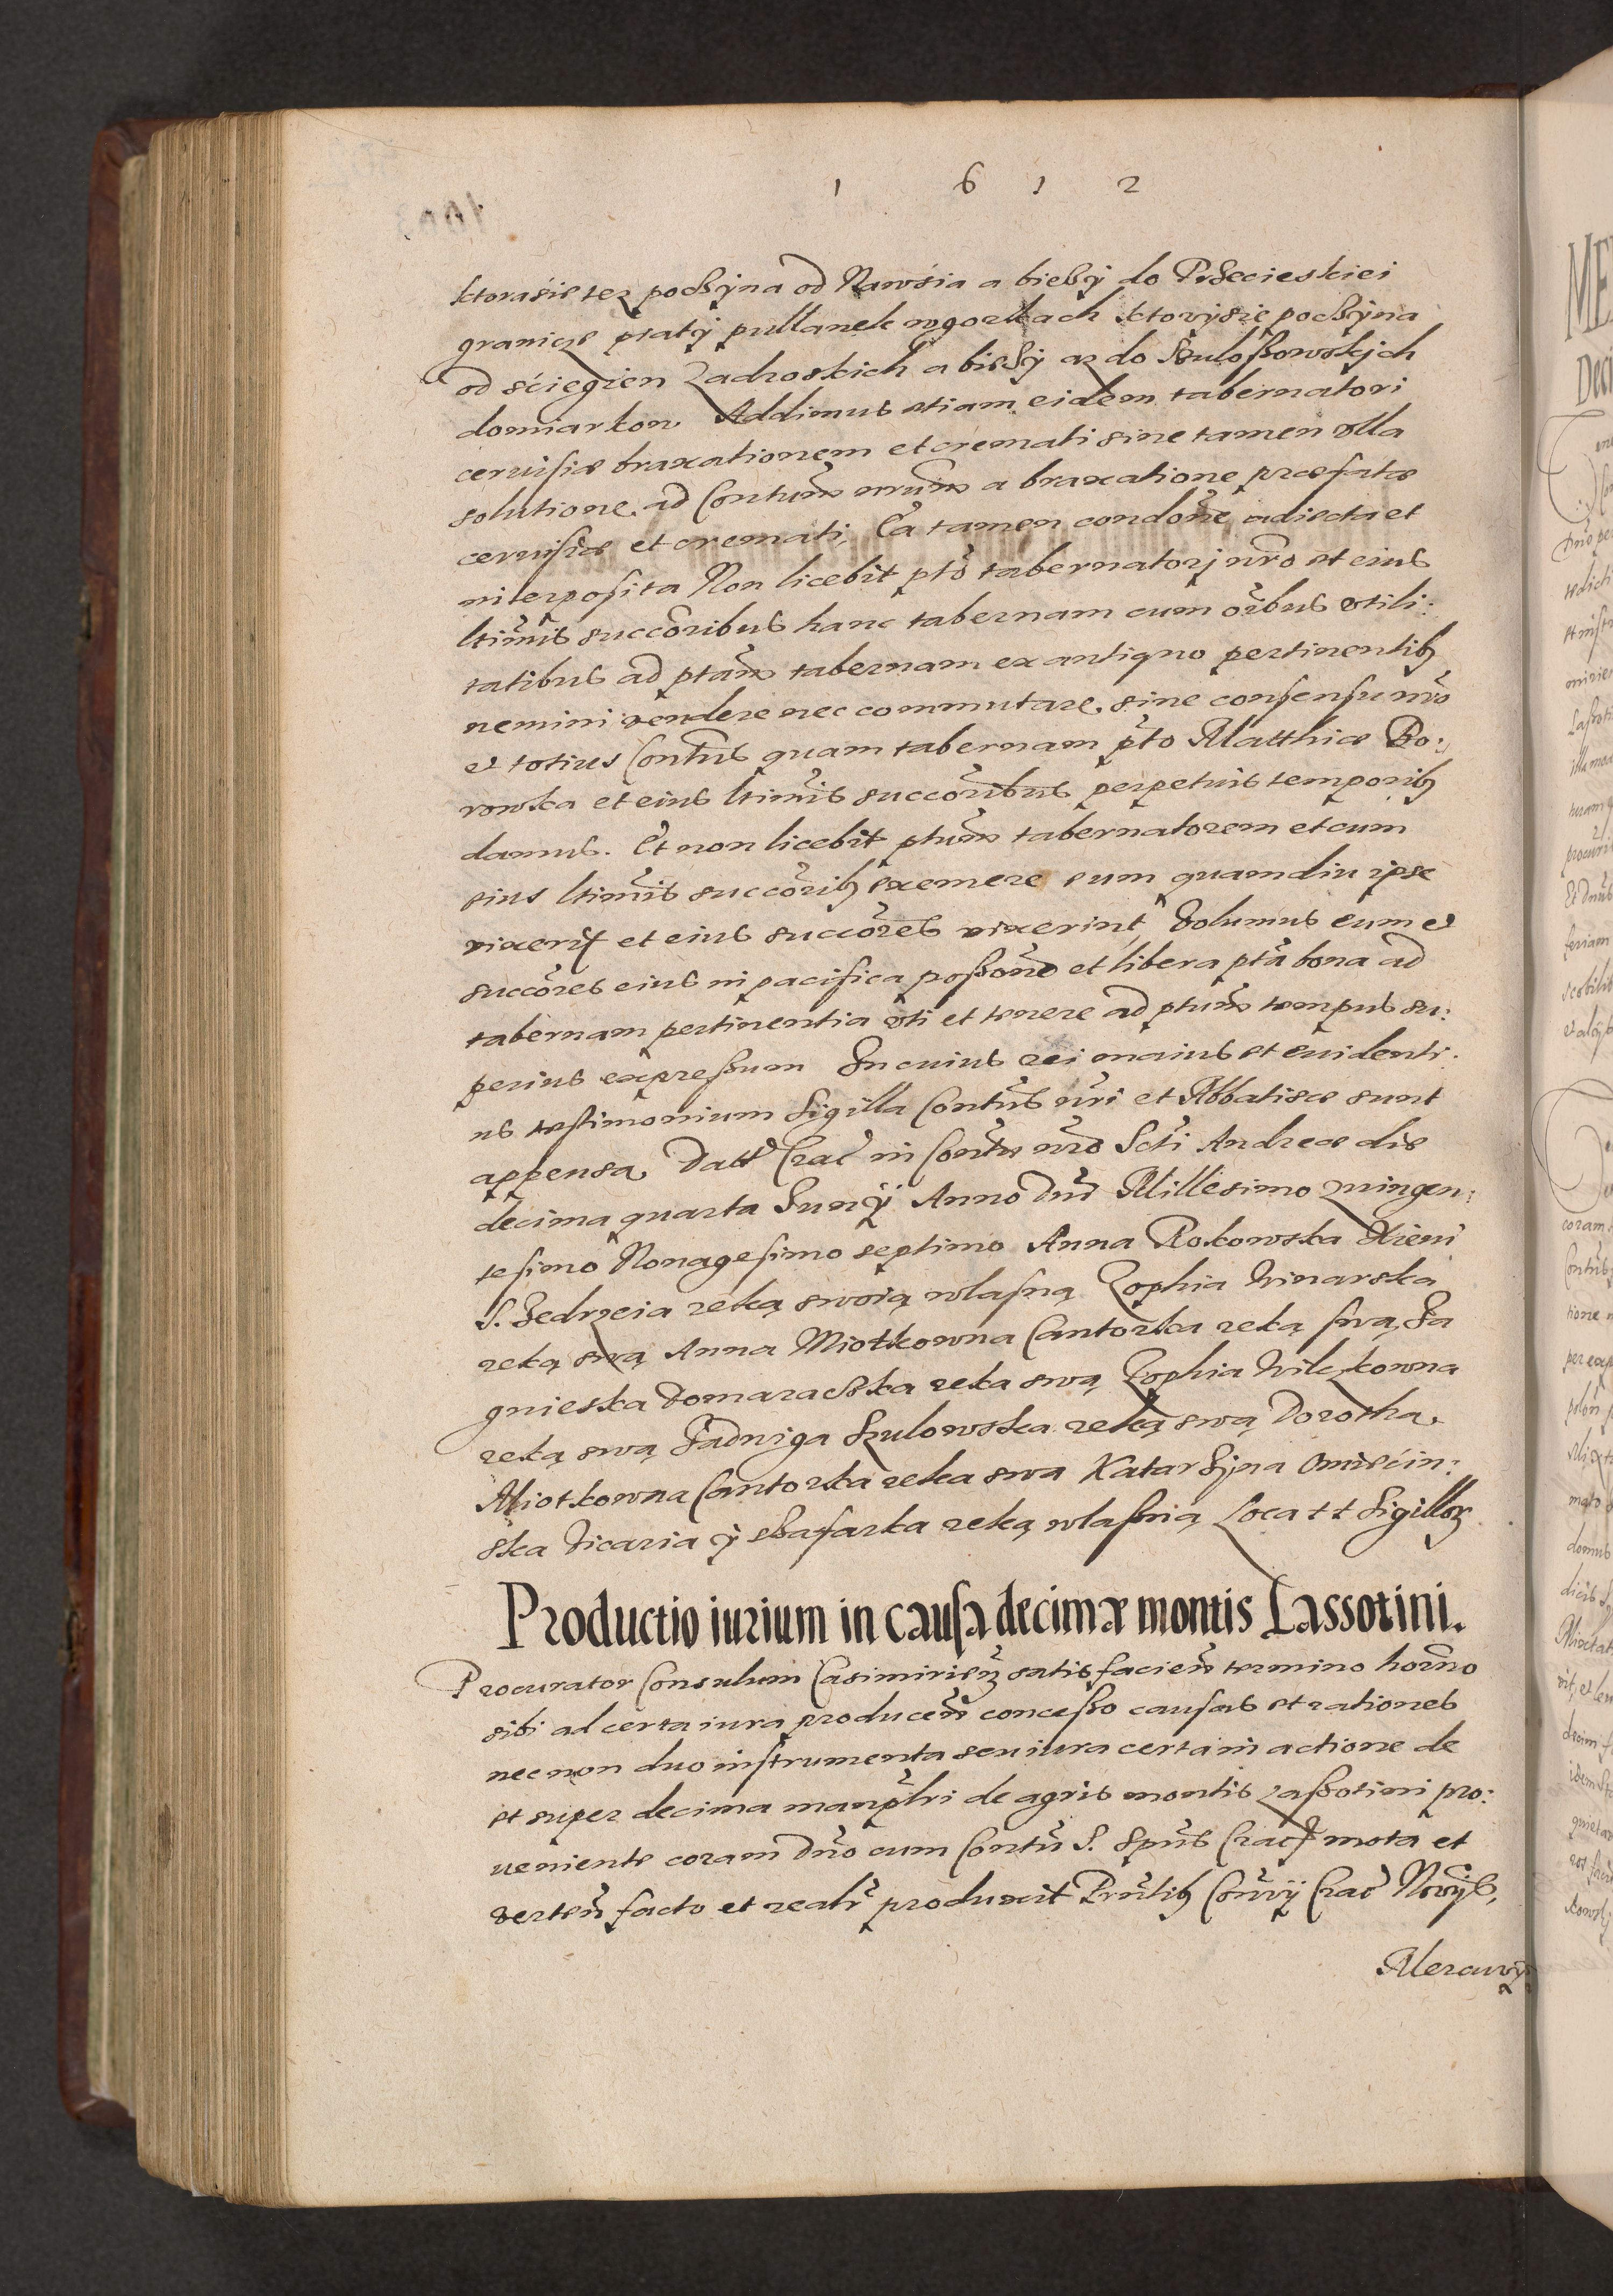 1 6 1 2
ktorasie tez poczyna od Nawsia a biezy do Przecieskiei
granicze piaty pullanek w gorkach ktory sie poczyna
od sciegien Zadroskich a biezy az do Szuloszowskich
domiarkow Addimus etiam eidem tabernatori
cervisiæ braxationem et cremati sine tamen vlla
solutione ad Contum nrum a braxatione præfatæ
cervisiæ et cremati, Ea tamen condone adiecta et
interposita Non licebit pto tabernatorj nro et eius
ltimis succoribus hanc tabernam cum oibus vtili:
tatibus ad ptam tabernam ex antiquo pertinentib
nemini vendere nec commutare sine consensu nro
et totius Contus quam tabernam pto Matthiæ Bo:
rowka et eius ltimis succoribus perpetuis temporib
damus. Et non licebit ptum tabernatorem et cum
eius ltimis succorib exemere eum quamdiu ipse
vixerit et eius succores vixerint Volumus eum et
succores eius in pacifica possone et libera pta bona ad
tabernam pertinentia vti et tenere ad ptum tempus su:
perius expressum In cuius rei maius et euidenti:
us testimonium Sigilla Contus nri et Abbatissæ sunt
appensa. Datt Crac in Contu nro Scti Andreæ die
decima quarta Junij Anno Dni Millesimo Quingen:
tesimo Nonagesimo septimo Anna Rokowska Xieni
S. Jedrzeia reką swoią własną Zophia Winarska
reką swą Anna Miotkowna Cantorka reką swą, Ja
gnieska Domaraczka reka swą Zophia Wilczkowna
reką swą Jadwiga Szulowska reką swą Dorotha
Miotkowna Cantorka reka swa Katarzyna
ska Vicaria y szafarka reką własną Loca tt Sigillor
Productio iurium in causa decimæ montis Lassotini.
Procurator Consulum Casimirien satisfacien termino horno
sibi ad certa iura producen concesso causas et rationes
nec non duo instrumenta seu iura certa in actione de
et super decima manplri de agris montis Lassotini pro:
ueniente coram Dno cum Contu S. Spus Crac mota et
verten facto et realr produxit Pntib Crac